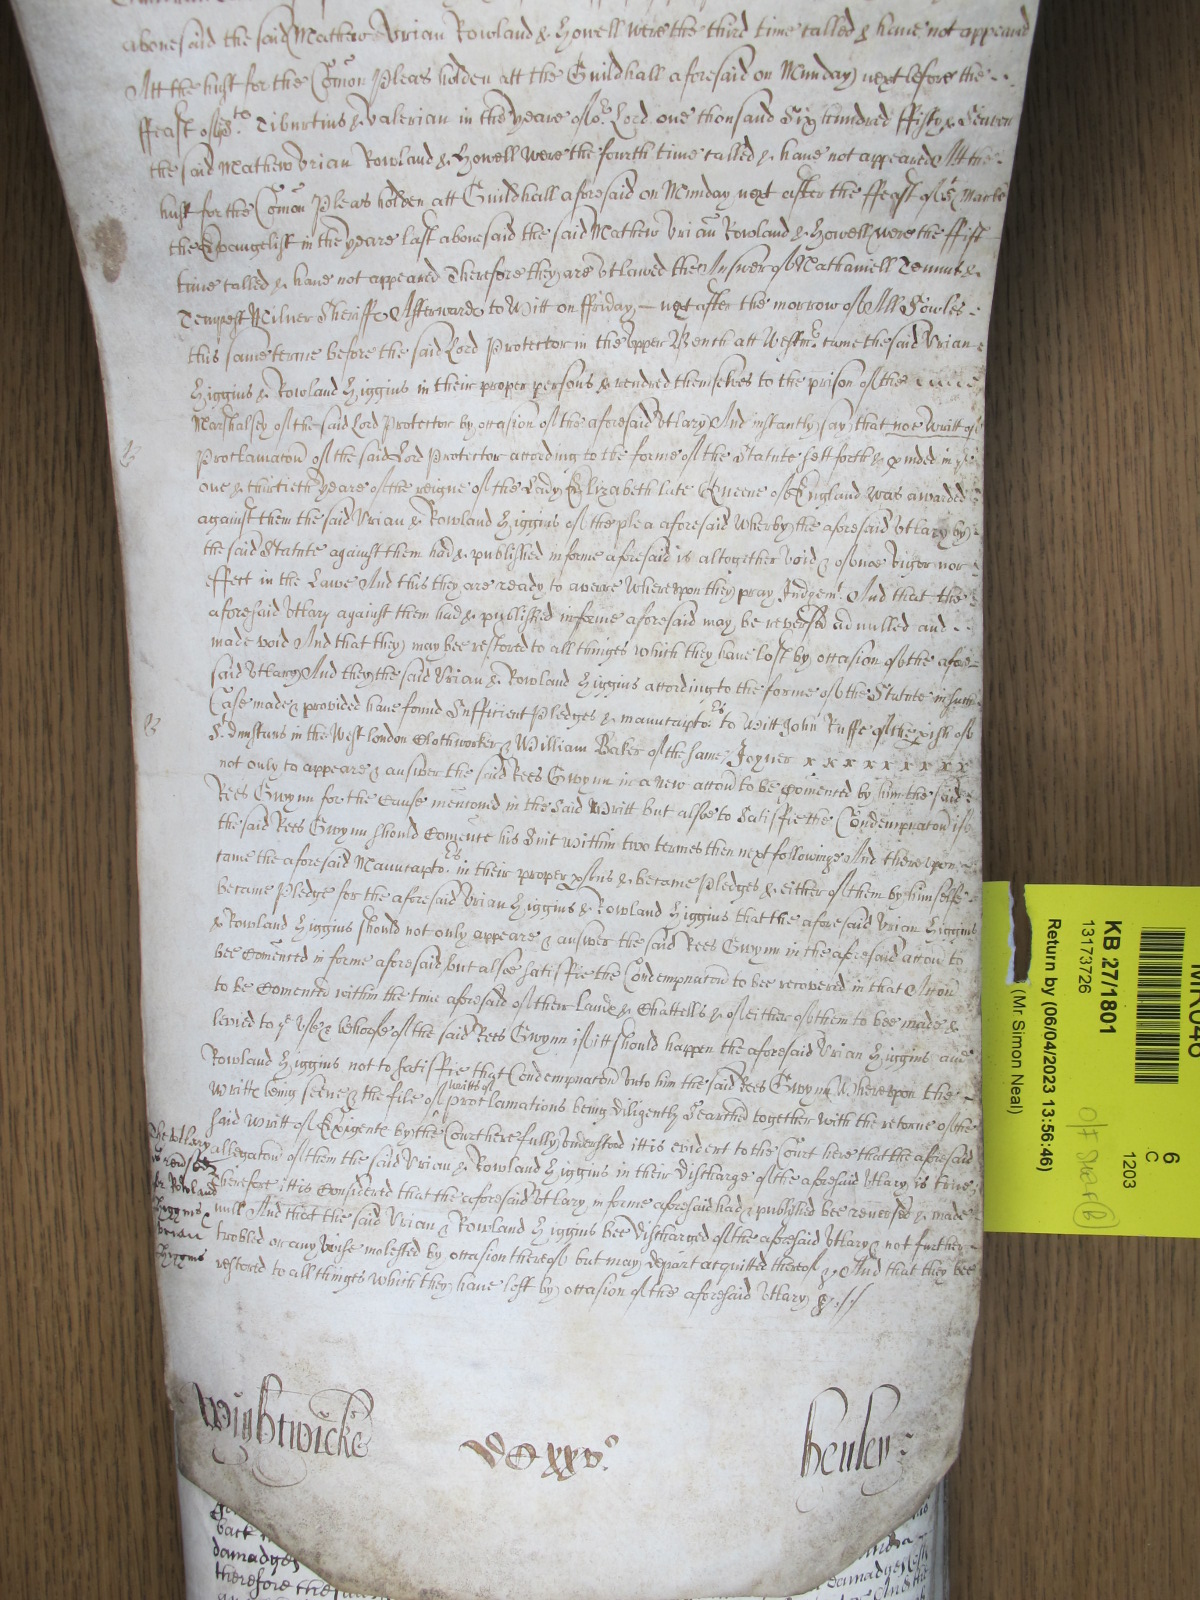 abovesaid the said Mathew Vrian Rowland & Howell were the third time called & have not appeared
Att the hust for the Comon Pleas holden att the Guildhall aforesaid on Munday next before the
ffeast of Tiburtius & Valerian in the yeare of or Lord one thousand Six hundred ffifty & Seaven
the said Mathew Vrian Rowland & Howell were the fourth time called & have not appeared Att the
hust for the Comon Pleas holden att Guildhall aforesaid on Munday next after the ffeast of St Marke
the Evangelist in the yeare last abovesaid the said Mathew Vrian Rowland & Howell were the ffift
time called & have not appeared Therefore they are Vtlawed the Answer of Nathaniell Temms &
Tempest Milner Sheriffs Afterwards to Witt on ffriday next after the morrow of All Sowles
this same terme before the said Lord Protector in the vpper Bench att Westmr came the said Vrian
Higgins & Rowland Higgins in their proper persons & rendred themselves to the prison of the
Marshalsey of the said Lord Protector by occasion of the aforesaid Vtlary And instantly say that noe Writt of
Proclamacon of the said Lord Protector according to the forme of the Statute sett forth & pvided in ye
one & thirtieth yeare of the reigne of the Lady Elizabeth late Queene of England was awarded
against them the said Vrian & Rowland Higgins of the plea aforesaid Wherby the aforesaid Vtlary by
the said Statute against them had & published in forme aforesaid is altogether void & of noe vigor nor
effect in the Lawe And this they are ready to averre Wherevpon they pray Judgemt And that the
aforesaid Vtlary against them had & published in forme aforesaid may be reversed adnulled and
made void And that they may bee restored to all thinges which they have lost by occasion of the afore
said Vtlary And they the said Vrian & Rowland Higgins according to the forme of the Statute in such
Case made & provided have found Sufficient Pledges & manucaptors to Witt John Ruffe of the pish of
St Dunstans in the West London Clothworker & William Baker of the same Joyner x x x x x x x x
not only to appeare & answer the said Rees Gwynn in a new accon to be comenced by him the said
Rees Gwynn for the cause mencioned in the Said Writt but alsoe to Satisfie the Condempnacon if
the said Rees Gwynn should Comence his Suit within two termes then next followinge And therevpon
came the aforesaid Manucaptors in their proper psons & became Pledges & either of them by himselfe
became Pledge for the aforesaid Vrian Higgins & Rowland Higgins that the aforesaid Vrian Higgins
& Rowland Higgins should not only appeare & answer the said Rees Gwynn in the aforesaid accon to
bee Comenced in forme aforesaid but alsoe satisfie the Condempnacon to bee recovered in that Accon
to be Comenced within the time aforesaid of their Lands & Chattells & of either of them to bee made &
levied to ye vse & behoofe of the said Rees Gwynn if itt should happen the aforesaid Vrian Higgins and
Rowland Higgins not to satisfie that Condempnacon vnto him the said Rees Gwynn Wherevpon the
Writts being seene & the file of writts of Proclamations being diligently Searched together with the retorne of the
said Writt of Exigente by the Court here fully vnderstood itt is evident to the Court here that the aforesaid
allegacon of them the said Vrian & Rowland Higgins in their discharge of the aforesaid Vtlary is true
Therefore itt is Considered that the aforesaid Vtlary in forme aforesaid had & published bee reversed & made
null And that the said Vrian & Rowland Higgins bee discharged of the aforesaid Vtlary & not further
trobled or any wise molested by occasion thereof but may depart acquitted thereof &c And that they bee
restored to all thinges which they have lost by occasion of the aforesaid Vtlary &c
The Vtlary
is revsed
for Rowland
Higgins &
Vrian
Higgins
Wightwicke
Ro xxvo
henley
back
damadges
therefore the
damadges
And the
KB 27/1801
13173726
Return by (06/04/2023 13:56:46)
(Mr Simon Neal)
6
C
1203